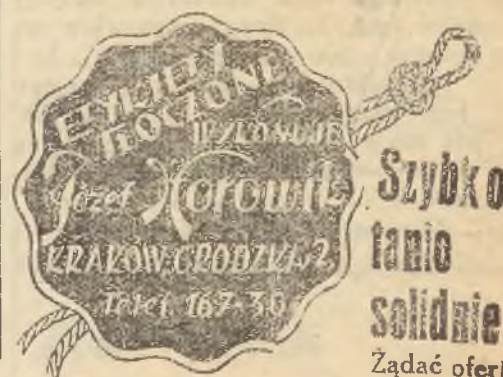 ETYKIETY
TŁOCZONE
WYKONUJE
Józef Horowitz
KRAKÓW, GRODZKA 2
Telef. 167-30
Szybko
tanio
solidnie
Żądać ofert